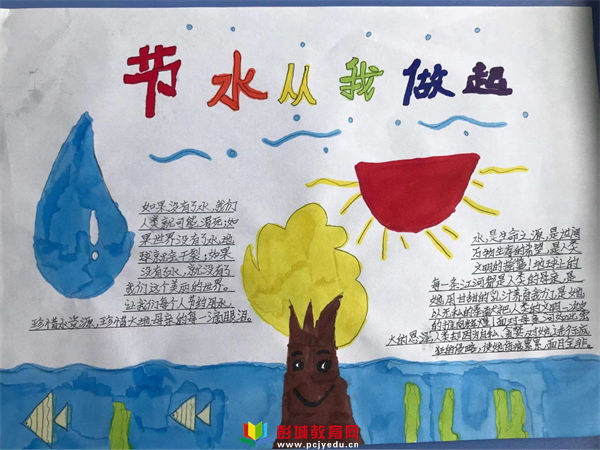 节水从我做起
如果没有了水,我们
人类就可能渴死;如
果世界没有了水,地
球就会干裂;如果
没有水,就没有了
我们这个美丽的世界。
让我们每个人节约用水,
珍惜水资源,珍惜大地母亲的每一滴眼泪。
水,是生命之源,是世间
万物生存的希望,是人类
文明的摇篮!地球上的
每一条江河都是人类的母亲,是
她用甘甜的乳汁养育我们,是她
以无私的奉献把人类的文明
大的恩泽,人类却因为自私,
狂的侵略,使她伤痕累累,面目全非。
彭城教育网
www.pcjyedu.cn